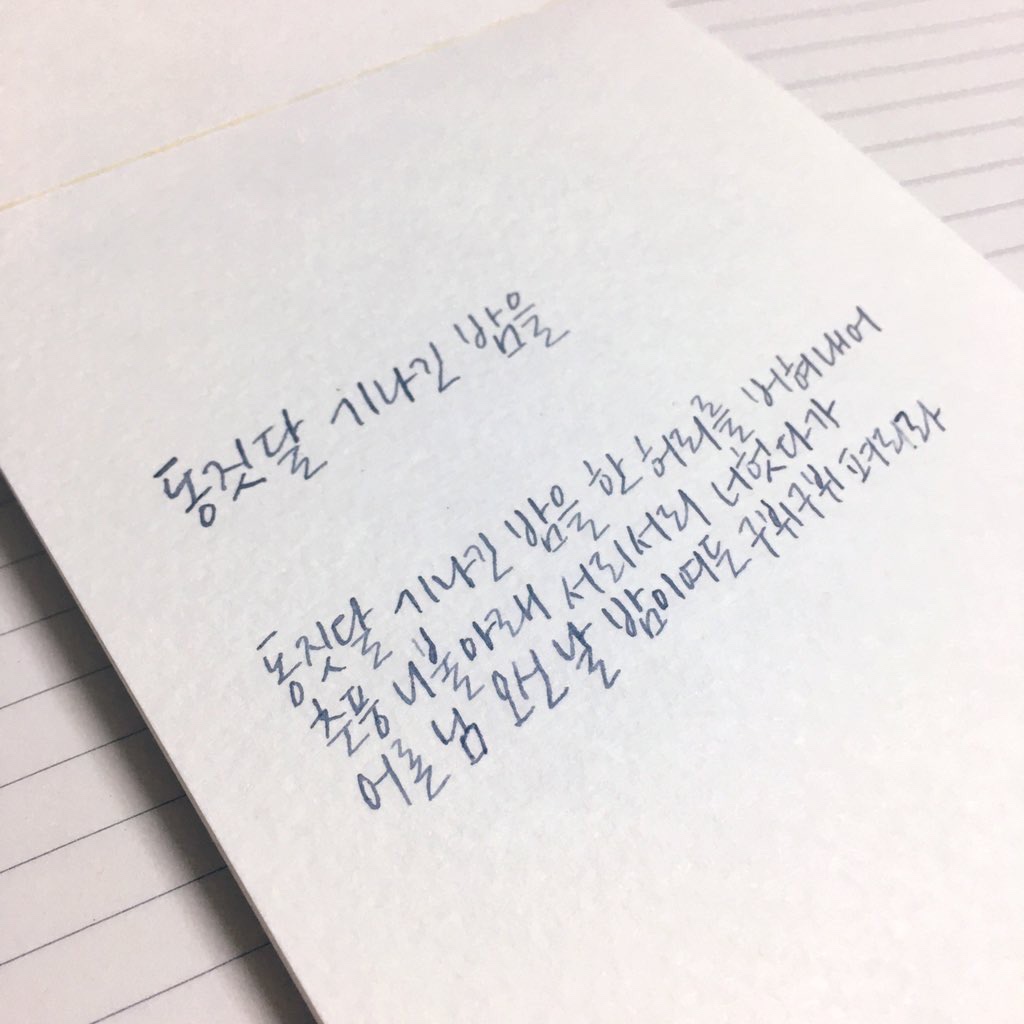 동짓달 기나긴 밤을
동짓달 기나긴 밤을 한 허리를 버혀내어
춘풍 니불아래 서리서리 너헛다가
어론 님 오신 날 밤이여든 구뷔구뷔 펴리라